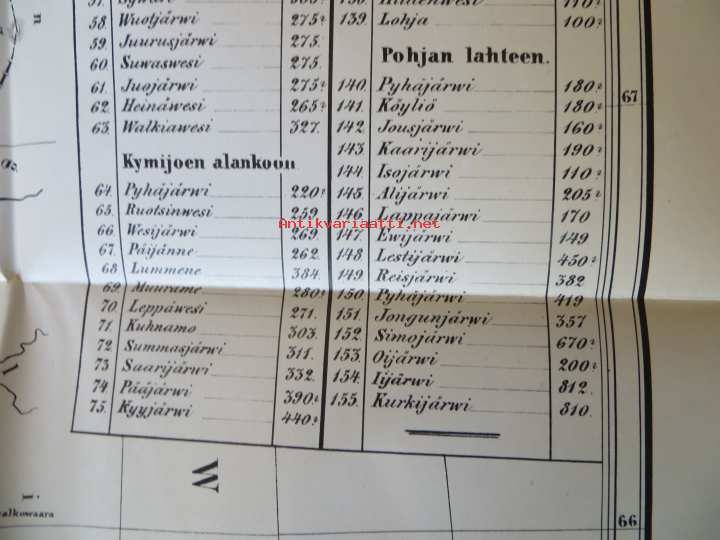 58 Wuotjärwi 275?
59 Juurusjärwi 275.
60 Suwaswesi 275.
61. Juojärwi 275?
62 Heinäwesi 265?
63. Walkiawesi 327.
Kymijoen alankoon
64. Pyhäjärwi 220?
65. Ruotsinwesi 259
66 Wesijärwi 269.
67. Päijänne 262.
68 Lummene 384.
69 Muurame 280?
70. Leppäwesi 271.
71. Kuhnamo 303.
72 Summasjärwi 311.
73 Saarijärwi 332.
74 Pääjärwi 390?
75. Kyyjärwi 440?
139. Lohja 100?
Pohjan lahteen.
140. Pyhäjärwi 180?
141. Köyliö 180?
142. Jousjärwi 160?
143. Kaarijärwi 190?
144. Isojärwi 110?
145. Alijärwi 205?
146. Lappajärwi 170
147. Ewijärwi 149
148 Lestijärwi 450?
149. Reisjärwi 382
150. Pyhäjärwi 419
151. Jongunjärwi 357
152. Simojärwi 670?
153. Oijärwi 200?
154. Iijärwi 812.
155. Kurkijärwi 810.
Antikvariaatti.net
67
66
W
alkowaara